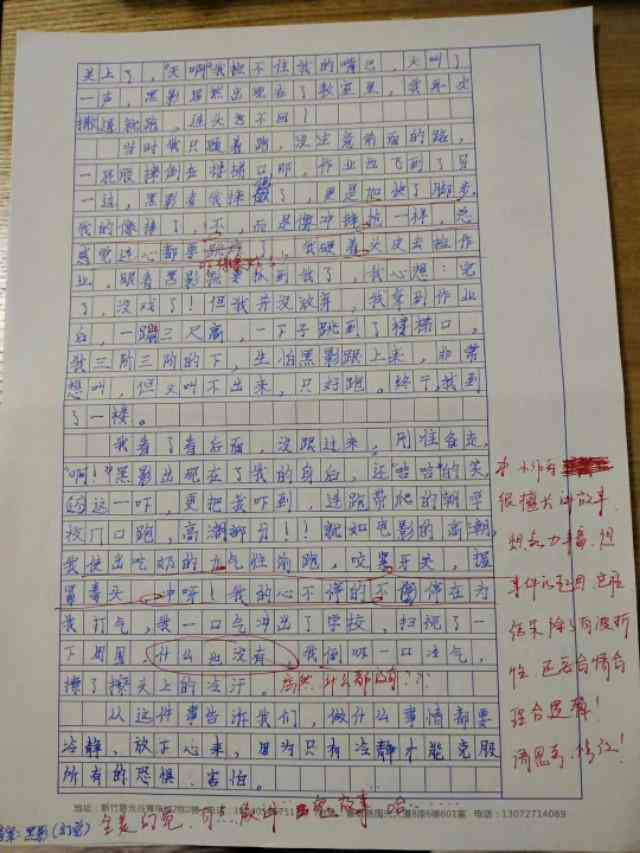 关上了，"天啊"我按不住我的嘴巴，大叫了
一声，黑影居然出现在了教室里，我再次
撒退就跑，连头也不回！
当时我只顾着跑，没注意前面的路，
一屁股摔倒在楼梯口那，作业也飞到了另
一边，黑影看我摔倒了，更是加快了脚步，
我的像摔了，不，而是像冲锋枪一样，
感觉连心都要跳掉了，我硬着头皮去捡作
业，眼看黑影就要抓到我了，我心想：完
了，没戏了！但我并没放弃，我拿到作业
后，一蹦三尺高，一下子跳到了楼梯口，
我三阶三阶的下，生怕黑影跟上来，非常
想叫，但又叫不出来，只好跑。终于，我到
了一楼。
我看了看后面，没跟过来，刚往备走，
"啊！"黑影出现在了我的身后，还"哈哈"的笑，
这一吓，更把我吓到，连跑带爬的朝学
校门口跑，高潮部分！！就如电影的高潮，
我使出吃奶的力气往前跑，咬紧牙关，握
紧拳头，冲呀！我的心不停的不停在为
我打气，我一口气冲出了学校，扫视了一
下周围，什么也没有，我倒吸一口冷气，
擦了擦头上的冷汗。居然什么都没有？？
从这件事告诉我们，做什么事情都要
冷静，放下心来，因为只有冷静才能克服
所有的恐惧、害怕。
本作有
很擅长讲故事，
想象力丰富，但
事件的起因经过
结果除了有波折
性，还要合情合
理合逻辑！
请思考，修改！
电话：13072714069
黑影（幻觉）